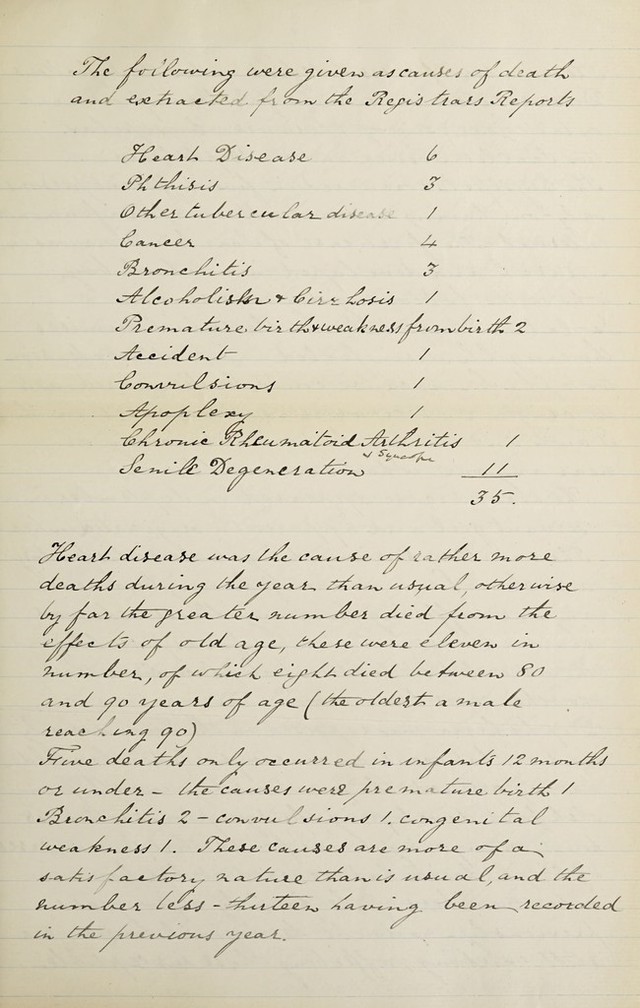 The following were given as causes of death
and extracted from the Registrars Reports
Heart Disease 6
Phthisis 3
Other tubercular disease 1
Cancer 4
Bronchitis 3
Alcoholism & Cirrhosis 1
Premature birth & weakness from birth 2
Accident 1
Convulsions 1
Apoplexy 1
Chronic Rheumatoid Arthritis 1
Senile Degeneration & Syncope 11
35.
Heart disease was the cause of rather more
deaths during the year than usual, otherwise
by far the greater number died from the
effects of old age, these were eleven in
number, of which eight died between 80
and 90 years of age (the oldest a male
reaching 90)
Five deaths only occurred in infants 12 months
or under - the causes were premature birth 1
Bronchitis 2 - convulsions 1. congenital
weakness 1. These causes are more of a
satisfactory nature than is usual, and the
number less - thirteen having been recorded
in the previous year.